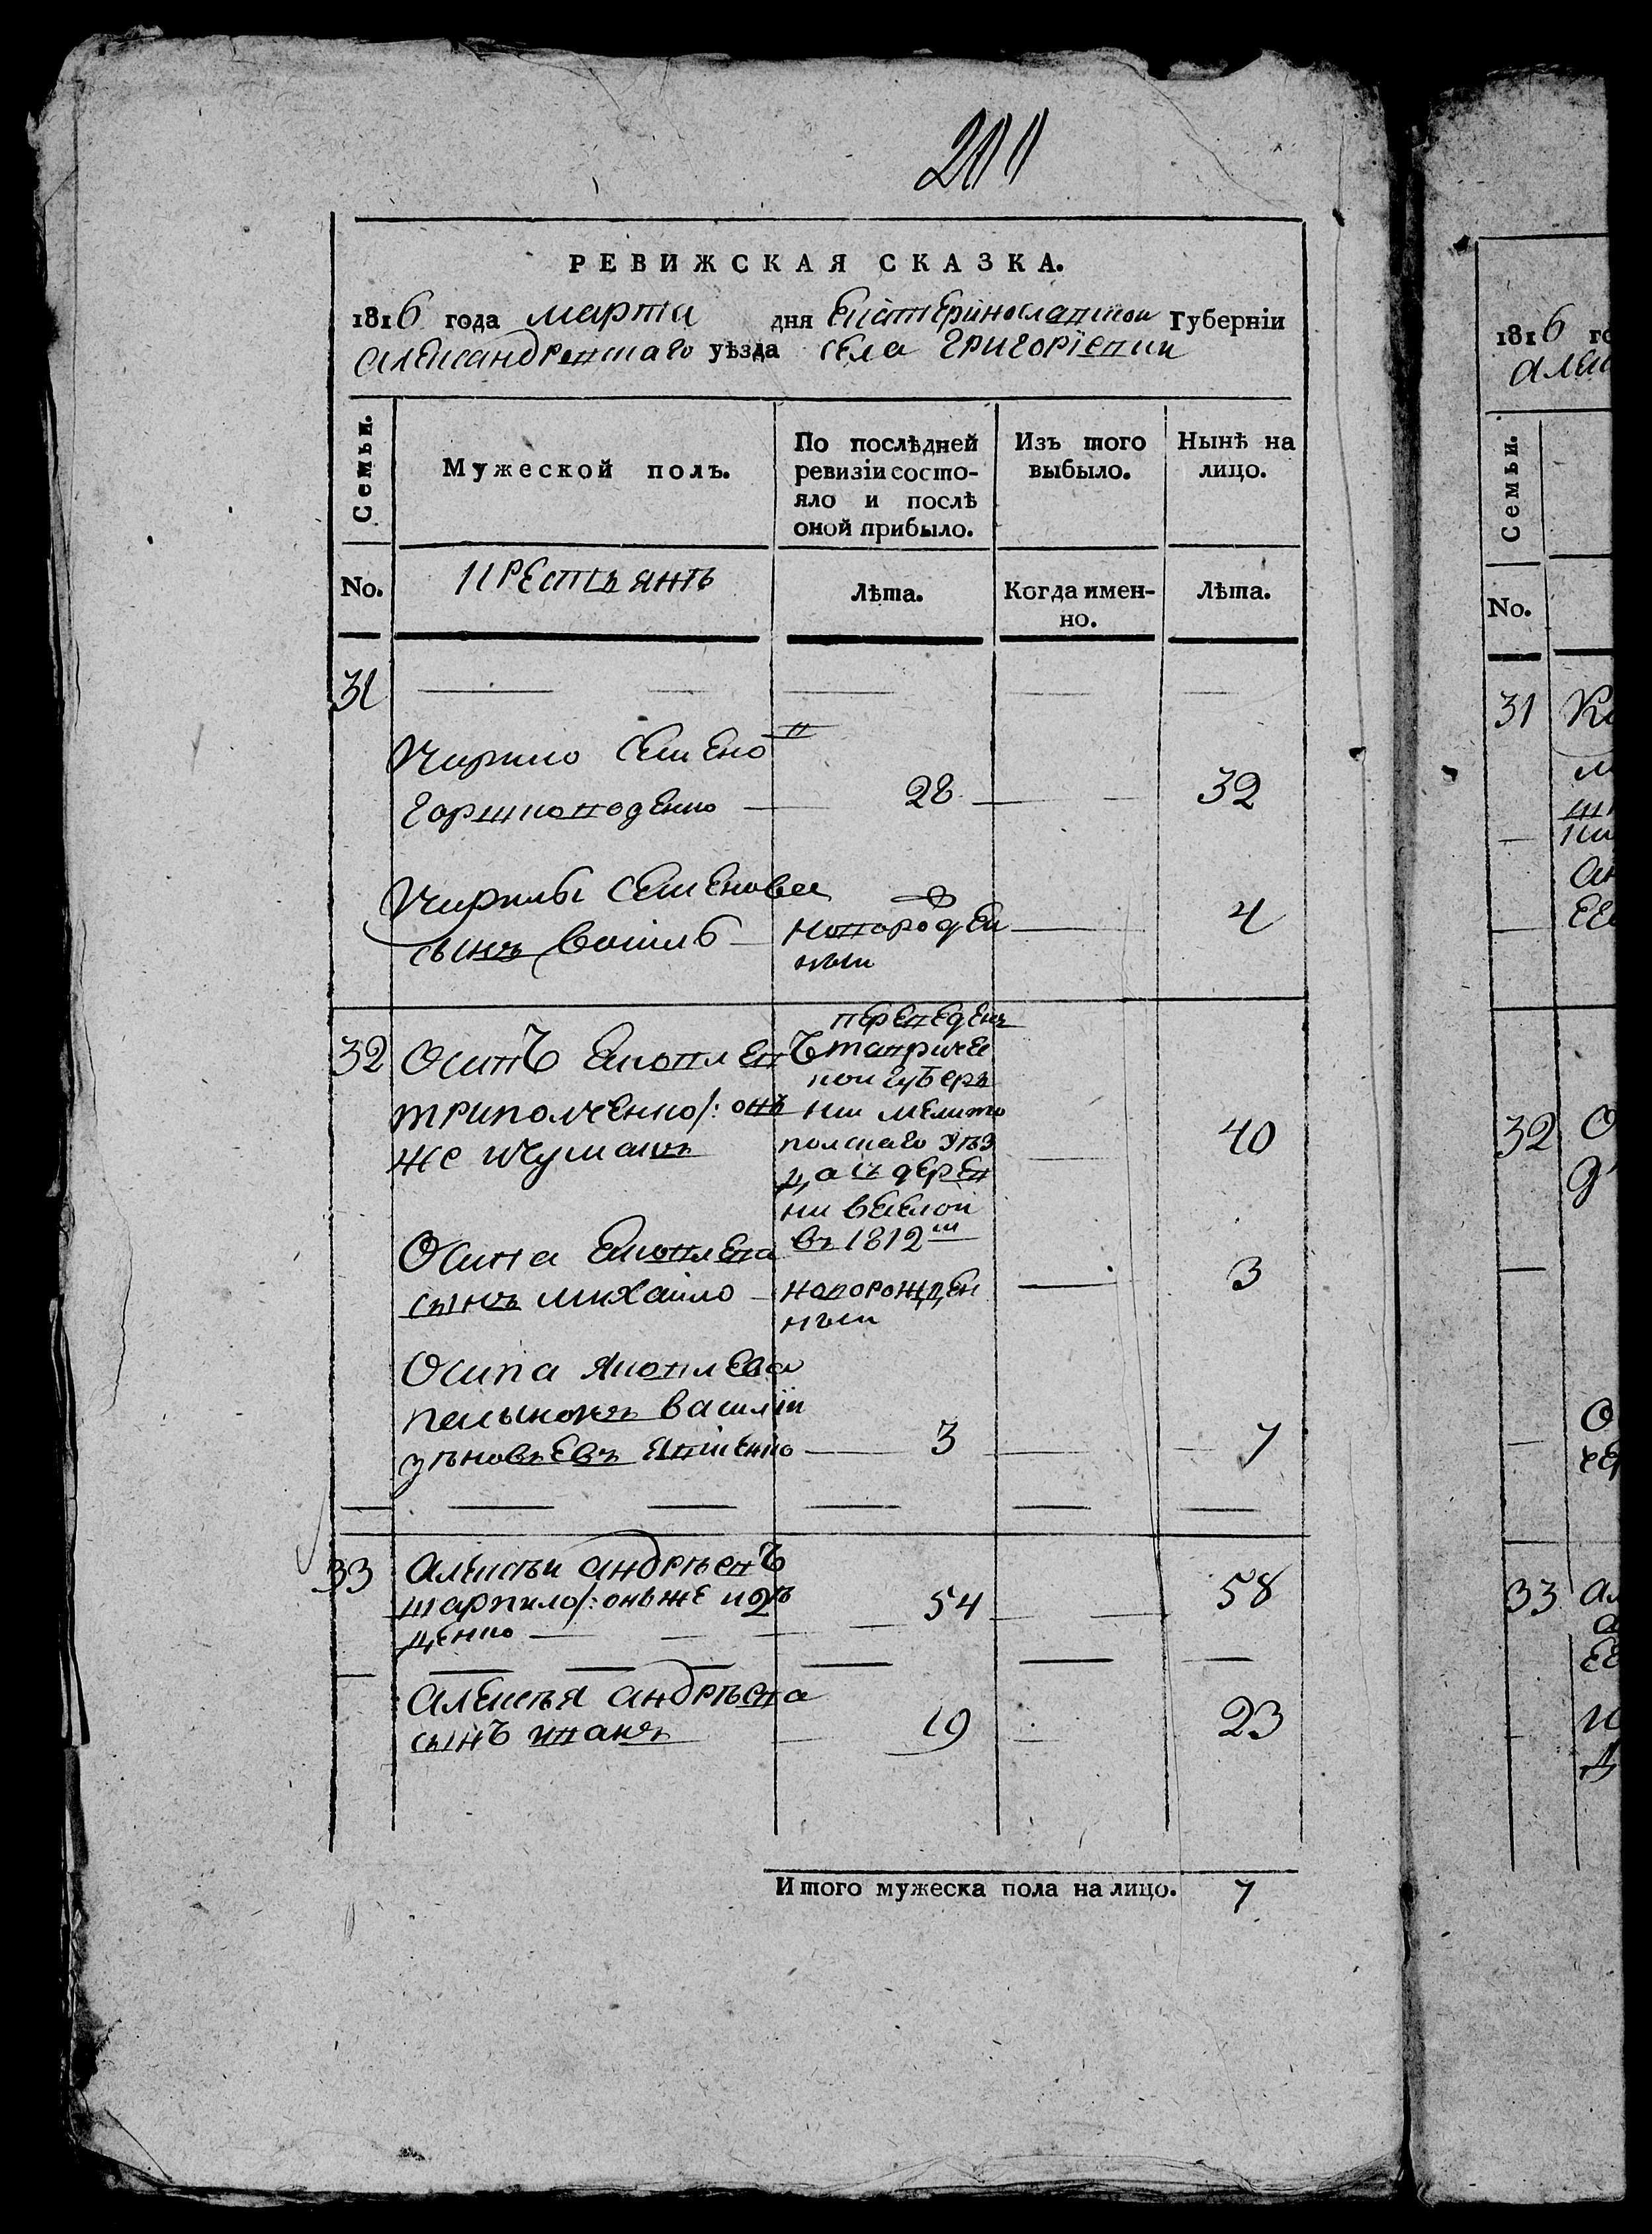 200
РЕВИЖСКАЯ СКАЗКА.
1816 года марта дня Екатеринославской Губерніи
Александровскаго уѣзда села Григорїевки
Семьи.
Мужеской полъ.
По послѣдней ревизіи состо-
яло и послѣ
оной прибыло.
Изъ того
выбыло.
Нынѣ на
лицо.
No.
крестьянъ
Лѣта.
Когда имен-
но.
Лѣта.
31
Кирило Семено в
Горшководенко 28 32
Кирилы Семенова
сынъ Василь новорожден
ныи 4
32 Осипъ Яковлевъ
Триполченко /: онъ
же Чумакъ
переведенъ
таврическ
кои губер
нии мелито
полскаго уѣз
да съ дерев
ни веселои
въ 1812м
40
Осипа Яковлева
сынъ михайло новорожден
ныи 3
Осипа Яковлева
пасынокъ василїи
зѣновьевъ 3 7
33 Алексѣи андрѣевъ
шарпило /: онъ же
денко 54 58
Алексѣя андрѣева
сынъ иванъ 19 23
Итого мужеска пола на лицо. 7
1816 го
Алек
Семьи.
No.
31
32
33